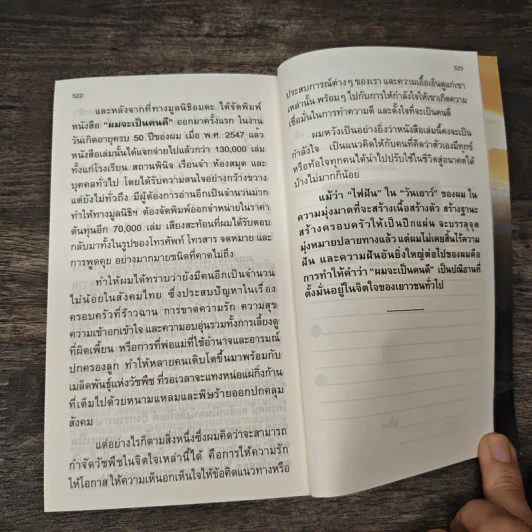 522
และหลังจากที่ทางมูลนิธิอมตะ ได้จัดพิมพ์
หนังสือ "ผมจะเป็นคนดี" ออกมาครั้งแรก ในงาน
วันเกิดอายุครบ 50 ปีของผม เมื่อ พ.ศ. 2547 แล้ว
หนังสือเล่มนั้นได้แจกจ่ายไปแล้วกว่า 130,000 เล่ม
ทั้งแก่โรงเรียน สถานพินิจ เรือนจำ ห้องสมุด และ
บุคคลทั่วไป โดยได้รับความสนใจอย่างกว้างขวาง
แต่ยังไม่ทั่วถึง มีผู้ต้องการอ่านอีกเป็นจำนวนมาก
ทำให้ทางมูลนิธิฯ ต้องจัดพิมพ์ออกจำหน่ายในราคา
ต้นทุนอีก 70,000 เล่ม เสียงสะท้อนที่ผมได้รับตอบ
กลับมาทั้งในรูปของโทรศัพท์ โทรสาร จดหมาย และ
การพูดคุย อย่างมากมายชนิดที่คาดไม่ถึง
ทำให้ผมได้ทราบว่ายังมีคนอีกเป็นจำนวน
ไม่น้อยในสังคมไทย ซึ่งประสบปัญหาในเรื่อง
ครอบครัวที่ร้าวฉาน การขาดความรัก ความสุข
ความเข้าอกเข้าใจ และความอบอุ่นรวมทั้งการเลี้ยงดู
ที่ผิดเพี้ยน หรือการที่พ่อแม่ที่ใช้อำนาจและอารมณ์
ปกครองลูก ทำให้หลายคนเติบโตขึ้นมาพร้อมกับ
เมล็ดพันธุ์แห่งวัชพืช ที่รอเวลาจะแทงหน่อแผ่กิ่งก้าน
ที่เต็มไปด้วยหนามแหลมและพิษร้ายออกปกคลุม
สังคม
แต่อย่างไรก็ตามสิ่งหนึ่งซึ่งผมคิดว่าจะสามารถ
กำจัดวัชพืชในจิตใจเหล่านี้ได้ คือการให้ความรัก
ให้โอกาส ให้ความเห็นอกเห็นใจให้ข้อคิดแนวทางหรือ
523
ประสบการณ์ต่างๆ ของเรา และความเอื้อเอ็นดูแก่เขา
เหล่านั้น พร้อมๆ ไปกับการให้กำลังใจให้เขาเกิดความ
เชื่อมั่นในการทำความดี และตั้งใจที่จะเป็นคนดี
ผมหวังเป็นอย่างยิ่งว่าหนังสือเล่มนี้คงจะเป็น
กำลังใจ เป็นแนวคิดให้กับคนที่คิดว่าตัวเองมีทุกข์
หรือท้อใจทุกคนได้นำไปปรับใช้ในชีวิตสู่อนาคตได้
บ้างไม่มากก็น้อย
แม้ว่า "ไฟฝัน" ใน "วันเยาว์" ของผม ใน
ความมุ่งมาดที่จะสร้างเนื้อสร้างตัว สร้างฐานะ
สร้างครอบครัวให้เป็นปึกแผ่น จะบรรลุจุด
มุ่งหมายปลายทางแล้ว แต่ผมไม่เคยสิ้นไร้ความ
ฝัน และความฝันอันยิ่งใหญ่ต่อไปของผมคือ
การทำให้คำว่า "ผมจะเป็นคนดี" เป็นปณิธานที่
ตั้งมั่นอยู่ในจิตใจของเยาวชนทั่วไป